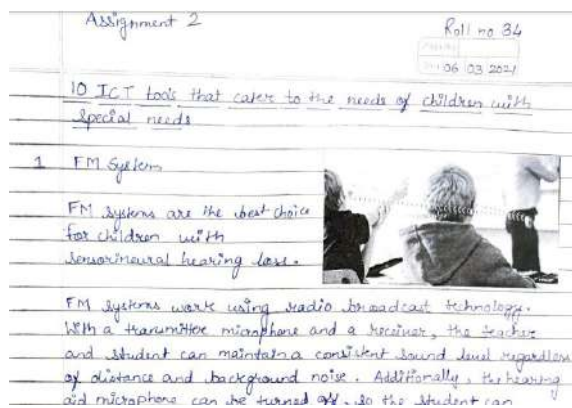 Assignment 2
Roll no 34
06 03 2021
10 ICT tools that cater to the needs of children with
special needs
1 FM System
FM systems are the best choice
for children with
sensorineural hearing loss.
FM systems work using radio broadcast technology.
With a transmitter microphone and a receiver, the teacher
and student can maintain a consistent sound level regardless
of distance and background noise. Additionally, the hearing
aid microphone can be turned off, so the student can